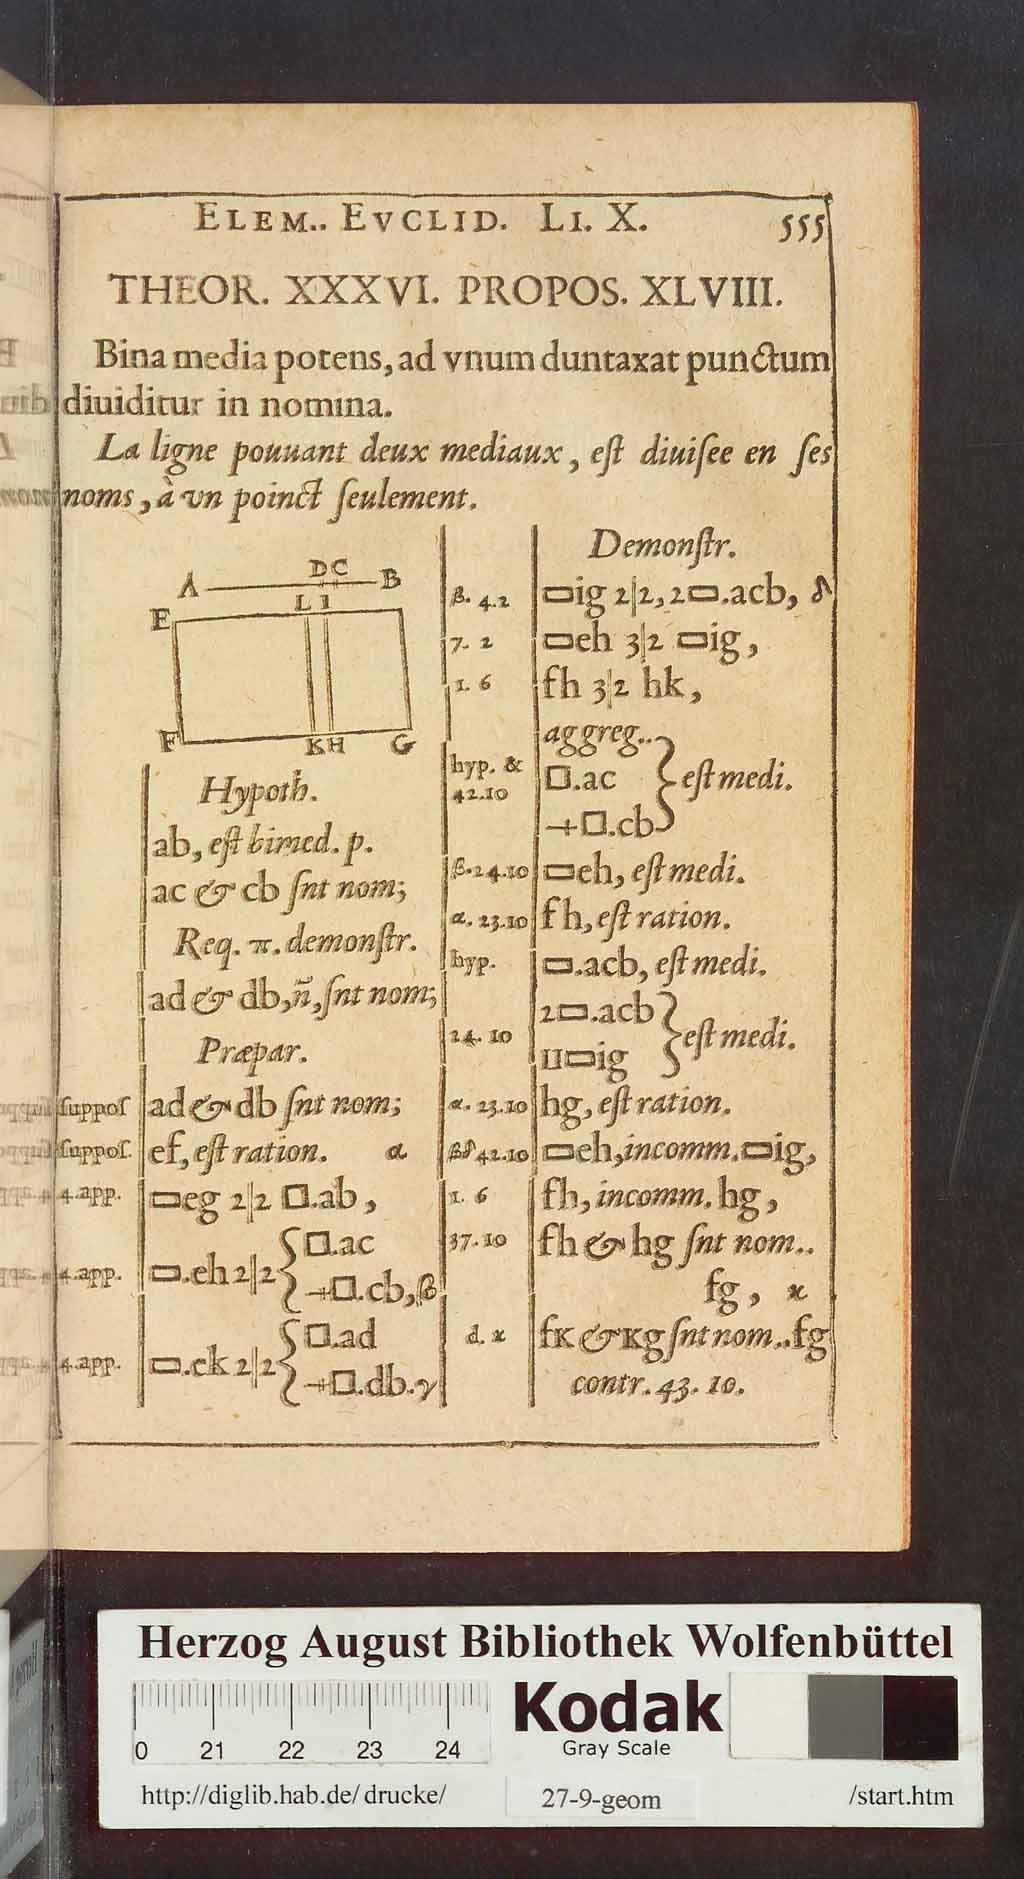 ELEM.. EVCLID. LI. X. 555
THEOR. XXXVI. PROPOS. XLVIII.
Bina media potens, ad vnum duntaxat punctum
diuiditur in nomina.
La ligne pouuant deux mediaux, eſt diuiſee en ſes
noms, à vn poinct ſeulement.
A D C B
E L I
F K H G
Hypoth.
ab, eſt bimed. p.
ac & cb ſnt nom;
Req. π. demonſtr.
ad & db, ñ, ſnt nom;
Præpar.
ſuppoſ ad & db ſnt nom;
ſuppoſ. ef, eſt ration. α
4.app. ▭eg 2|2 □.ab,
4.app. ▭.eh 2|2 { □.ac
+□.cb, β
4.app. ▭.ek 2|2 { □.ad
+□.db. γ
Demonſtr.
β. 4.2 ▭ig 2|2, 2▭.acb, δ
7. 2 ▭eh 3|2 ▭ig,
1. 6 fh 3|2 hk,
aggreg..
hyp. &
42.10 □.ac } eſt medi.
+□.cb
β.24.10 ▭eh, eſt medi.
α. 23.10 fh, eſt ration.
hyp. ▭.acb, eſt medi.
2▭.acb
24. 10 } eſt medi.
ΙΙ▭ig
α. 23.10 hg, eſt ration.
βδ 42.10 ▭eh, incomm. ▭ig,
1. 6 fh, incomm. hg,
37.10 fh & hg ſnt nom..
fg, ϰ
d. ϰ fK & Kg ſnt nom.. fg
contr. 43. 10.
Herzog August Bibliothek Wolfenbüttel
0 21 22 23 24
Kodak
Gray Scale
http://diglib.hab.de/ drucke/ 27-9-geom /start.htm